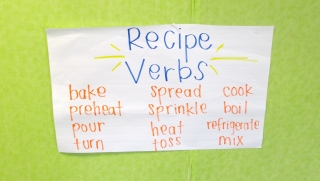 Recipe
Verbs
bake spread cook
preheat sprinkle boil
pour heat refrigerate
turn toss mix